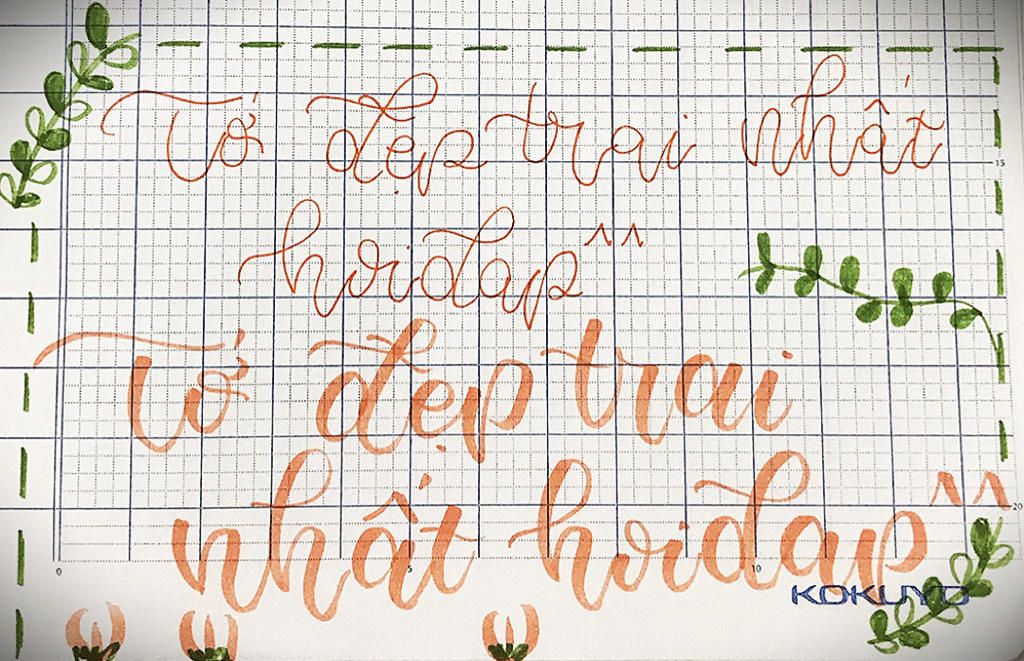 Tớ đẹp trai nhất
hoidap^^
Tớ đẹp trai
nhất hoidap^^
15
20
0
5
10
KOKUYO